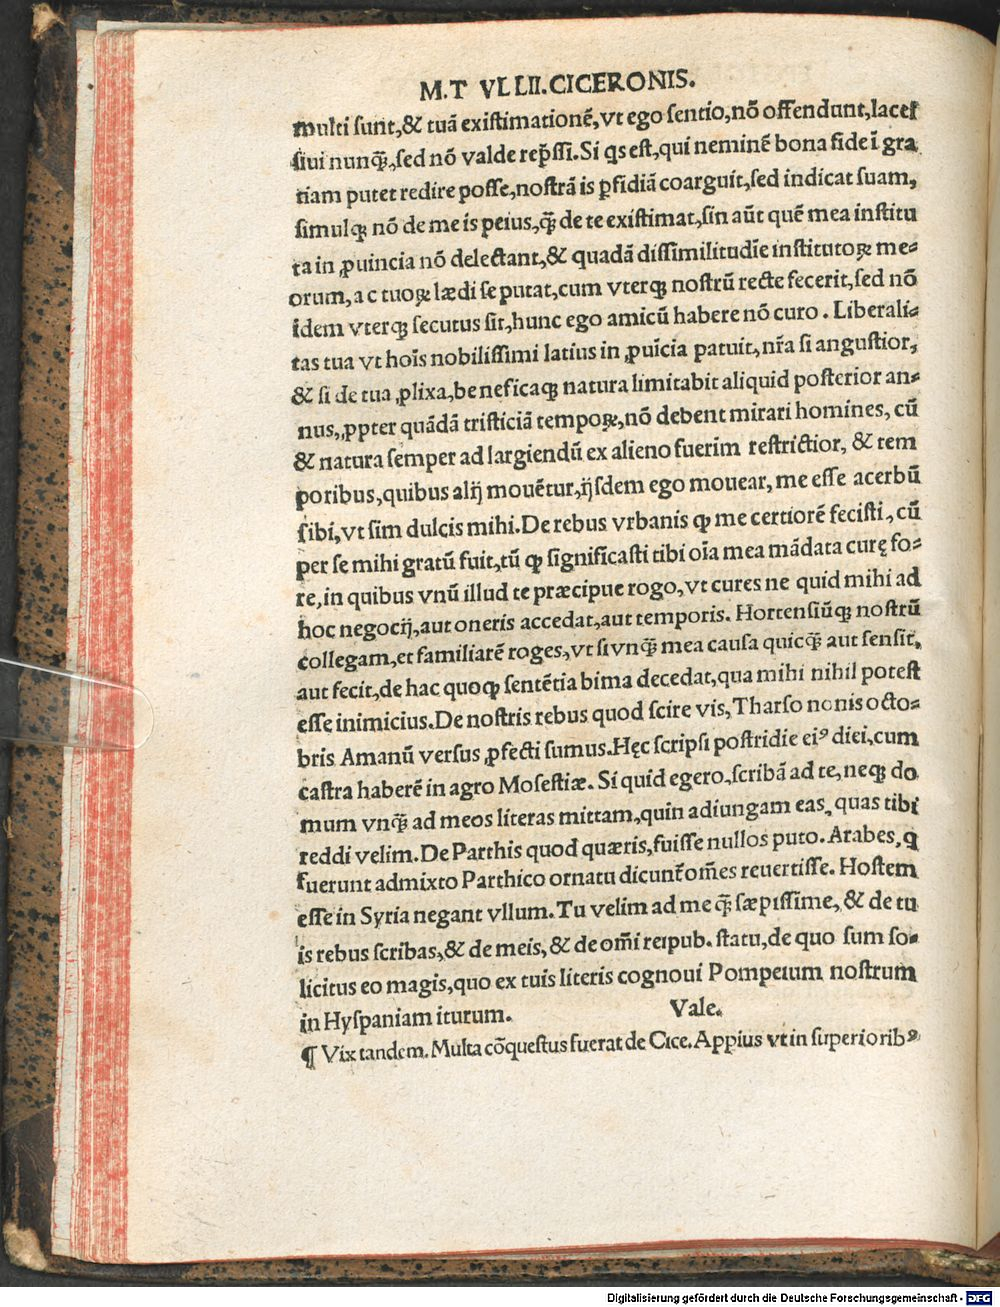 M.T VLLII.CICERONIS.
multi ſunt,& tuā exiſtimationē,vt ego ſentio,nō offendunt,laceſ
ſiui nunq̄,ſed nō valde rep̄ſſi.Si qs eſt,qui neminē bona fide ī gra
tiam putet redire poſſe,noſtrā is ꝑfidiā coarguit,ſed indicat ſuam,
ſimulqꝫ nō de me is peius,q̄ de te exiſtimat,ſin aūt quē mea inſtitu
ta in ꝓuincia nō delectant,& quadā diſſimilitudīe inſtitutoꝝ me⸗
orum,a c tuoꝝ lædi ſe putat,cum vterqꝫ noſtrū recte fecerit,ſed nō
idem vterqꝫ ſecutus ſit,hunc ego amicū habere nō curo . Liberali⸗
tas tua vt hoīs nobiliſſimi latius in ꝓuīcia patuit,nr̄a ſi anguſtior,
& ſi de tua ꝓlixa,beneficaqꝫ natura limitabit aliquid poſterior an⸗
nus,ꝓpter quādā triſticiā tempoꝝ,nō debent mirari homines, cū
& natura ſemper ad largiendū ex alieno fuerim reſtrictior, & tem
poribus,quibus alij mouētur,ijſdem ego mouear, me eſſe acerbū
ſibi,vt ſim dulcis mihi.De rebus vrbanis ꝙ me certiorē feciſti,cū
per ſe mihi gratū fuit,tū ꝙ ſignificaſti tibi oīa mea mādata curę fo⸗
re,in quibus vnū illud te præcipue rogo,vt cures ne quid mihi ad
hoc negocij,aut oneris accedat,aut temporis. Hortenſiūqꝫ noſtrū
collegam,et familiarē roges,vt ſi vnq̄ mea cauſa quicq̄ aut ſenſit,
aut fecit,de hac quoqꝫ ſentētia bima decedat,qua mihi nihil poteſt
eſſe inimicius.De noſtris rebus quod ſcire vis,Tharſo nonis octo⸗
bris Amanū verſus ꝓfecti ſumus.Hęc ſcripſi poſtridie eiꝰ diei,cum
caſtra haberē in agro Moſeſtiæ. Si quid egero,ſcribā ad te,neqꝫ do
mum vnq̄ ad meos literas mittam,quin adiungam eas, quas tibi
reddi velim.De Parthis quod quæris,fuiſſe nullos puto. Arabes,q
fuerunt admixto Parthico ornatu dicunt̄ om̄es reuertiſſe. Hoſtem
eſſe in Syria negant vllum. Tu velim ad me q̄ ſæpıſſime, & de tu
is rebus ſcribas,& de meis, & de om̄i reıpub. ſtatu,de quo ſum ſo⸗
licitus eo magis,quo ex tuis literis cognoui Pompeıum noſtrum
in Hyſpaniam iturum. Vale.
¶ Vix tandem. Multa cōqueſtus fuerat de Cice. Appius vt in ſuperioribꝰ
Digitalisierung gefördert durch die Deutsche Forschungsgemeinschaft - DFG